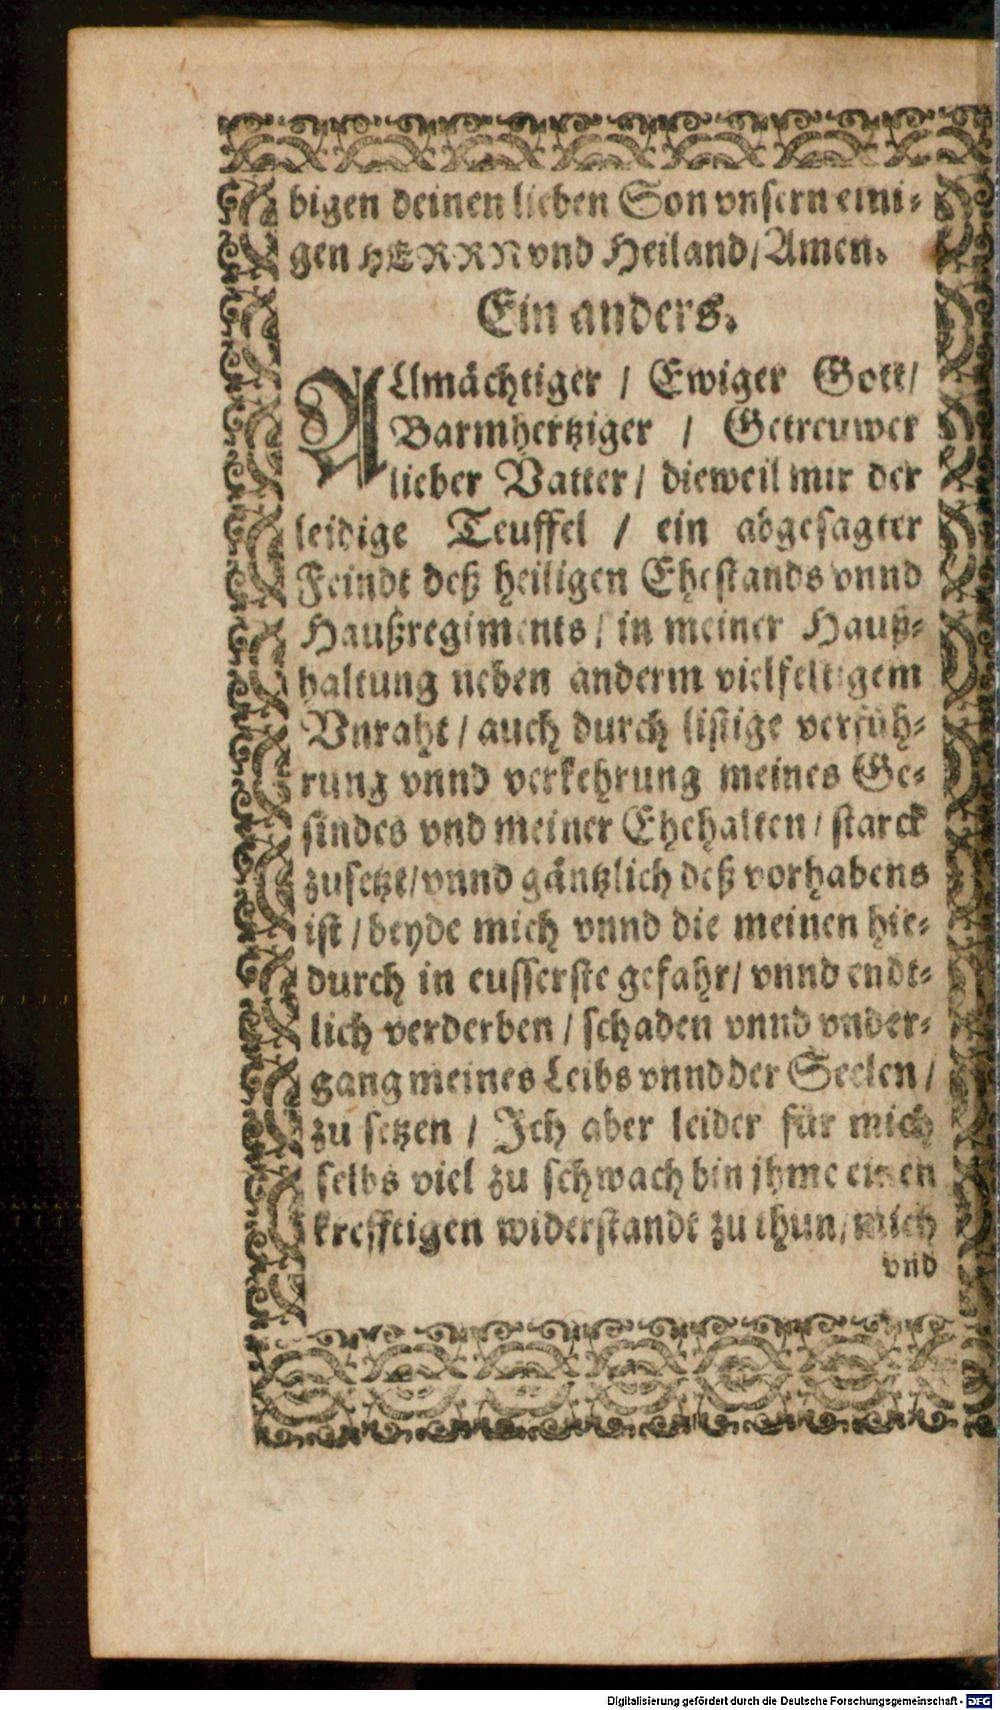 bigen deinen lieben Son vnsern eini-
gen HERRN vnd Heiland/ Amen.
Ein anders.
ALlmächtiger / Ewiger Gott/
Barmhertziger / Getreuwer
lieber Vatter / dieweil mir der
leidige Teuffel / ein abgesagter
Feindt deß heiligen Ehestands vnnd
Haußregiments / in meiner Hauß-
haltung neben anderm vielfeltigem
Vnraht / auch durch listige verfüh-
rung vnnd verkehrung meines Ge-
sindes vnd meiner Ehehalten / starck
zusetzt/ vnnd gäntzlich deß vorhabens
ist / beyde mich vnnd die meinen hie-
durch in eusserste gefahr/ vnnd endt-
lich verderben / schaden vnnd vnder-
gang meines Leibs vnnd der Seelen /
zu setzen / Ich aber leider für mich
selbs viel zu schwach bin jhme einen
krefftigen widerstandt zu thun/ mich
vnd
Digitalisierung gefördert durch die Deutsche Forschungsgemeinschaft - DFG